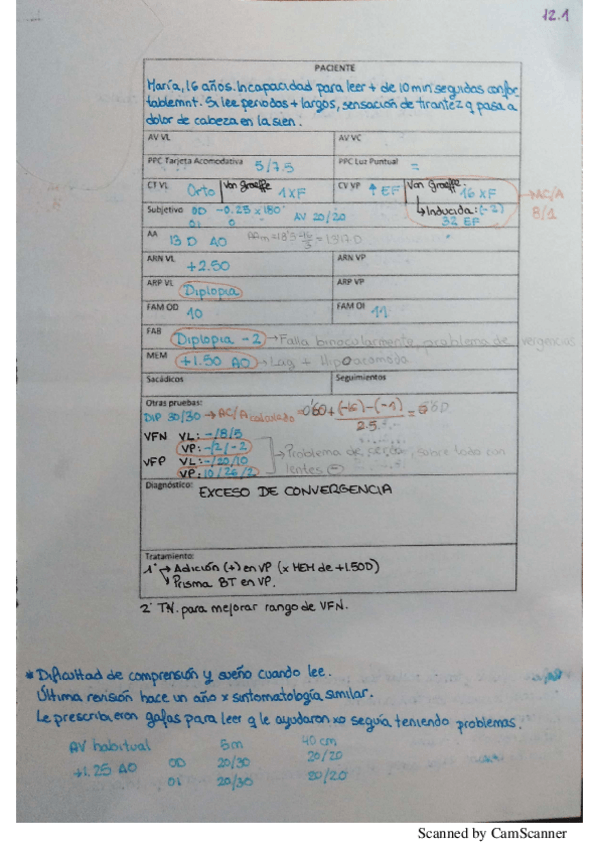 12.1
PACIENTE
María, 16 años. Incapacidad para leer + de 10 min seguidos confor
tablemnt. Si lee periodos + largos, sensación de tirantez q pasa a
dolor de cabeza en la sien.
AV VL AV VC
PPC Tarjeta Acomodativa 5/7.5 PPC Luz Puntual =
CT VL Orto Von Graeffe 1XF CV VP ↑ EF Von Graeffe: 16 XF → AC/A
↳ Inducida: (-2) 8/1
32 EF
Subjetivo OD -0.25 x 180° AV 20/20
OI 0
AA 13 D AO
ARN VL +2.50 ARN VP
ARP VL Diplopia ARP VP
FAM OD 10 FAM OI 11
FAB Diplopia -2 → Falla binocularmente, problema de vergencias
MEM +1.50 AO → Lag + Hipoacomoda
Sacádicos Seguimientos
Otras pruebas:
DIP 30/30 → AC/A calculado = 0'60 + (-16)-(-1) / 2.5
VFN VL: -/8/5
VP: -/2/-2
VFP VL: -/20/10
VP: 10/26/2
→ Problema de cerca, sobre todo con
lentes ⊖
Diagnóstico: EXCESO DE CONVERGENCIA
Tratamiento:
1° → Adición (+) en VP (x MEM de +1.50D)
↳ Prisma BT en VP.
2° TV. para mejorar rango de VFN.
* Dificultad de comprensión y sueño cuando lee.
Última revisión hace un año x sintomatología similar.
Le prescribieron gafas para leer q le ayudaron xo seguía teniendo problemas.
AV habitual 5m 40 cm
+1.25 AO OD 20/30 20/20
OI 20/30 20/20
Scanned by CamScanner